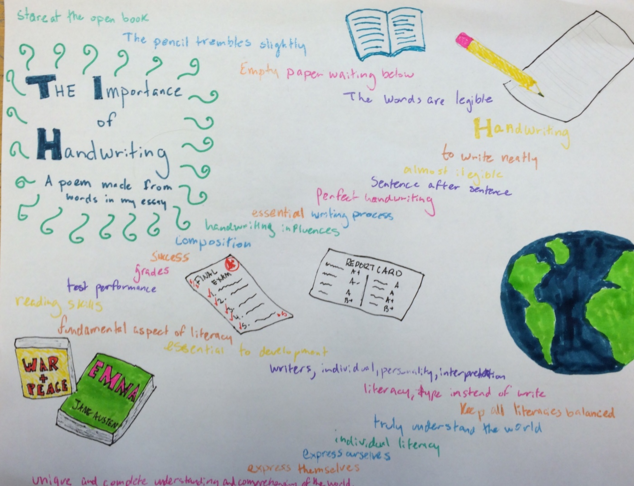 stare at the open book
The pencil trembles slightly
Empty paper waiting below
The words are legible
Handwriting
to write neatly
almost illegible
Sentence after sentence
Perfect handwriting
essential writing process
handwriting influences
composition
success
grades
test performance
reading skills
fundamental aspect of literacy
essential to development
writers, individual, personality, interpretation
literacy, type instead of write
Keep all literacies balanced
truly understand the world
individual literacy
express ourselves
express themselves
unique and complete understanding and comprehension of the world.
THE Importance
of
Handwriting
A poem made from
words in my essay
FINAL
EXAM
REPORT CARD
A+
A-
A
B+
A
A-
A+
B+
WAR
+
PEACE
EMMA
JANE AUSTEN